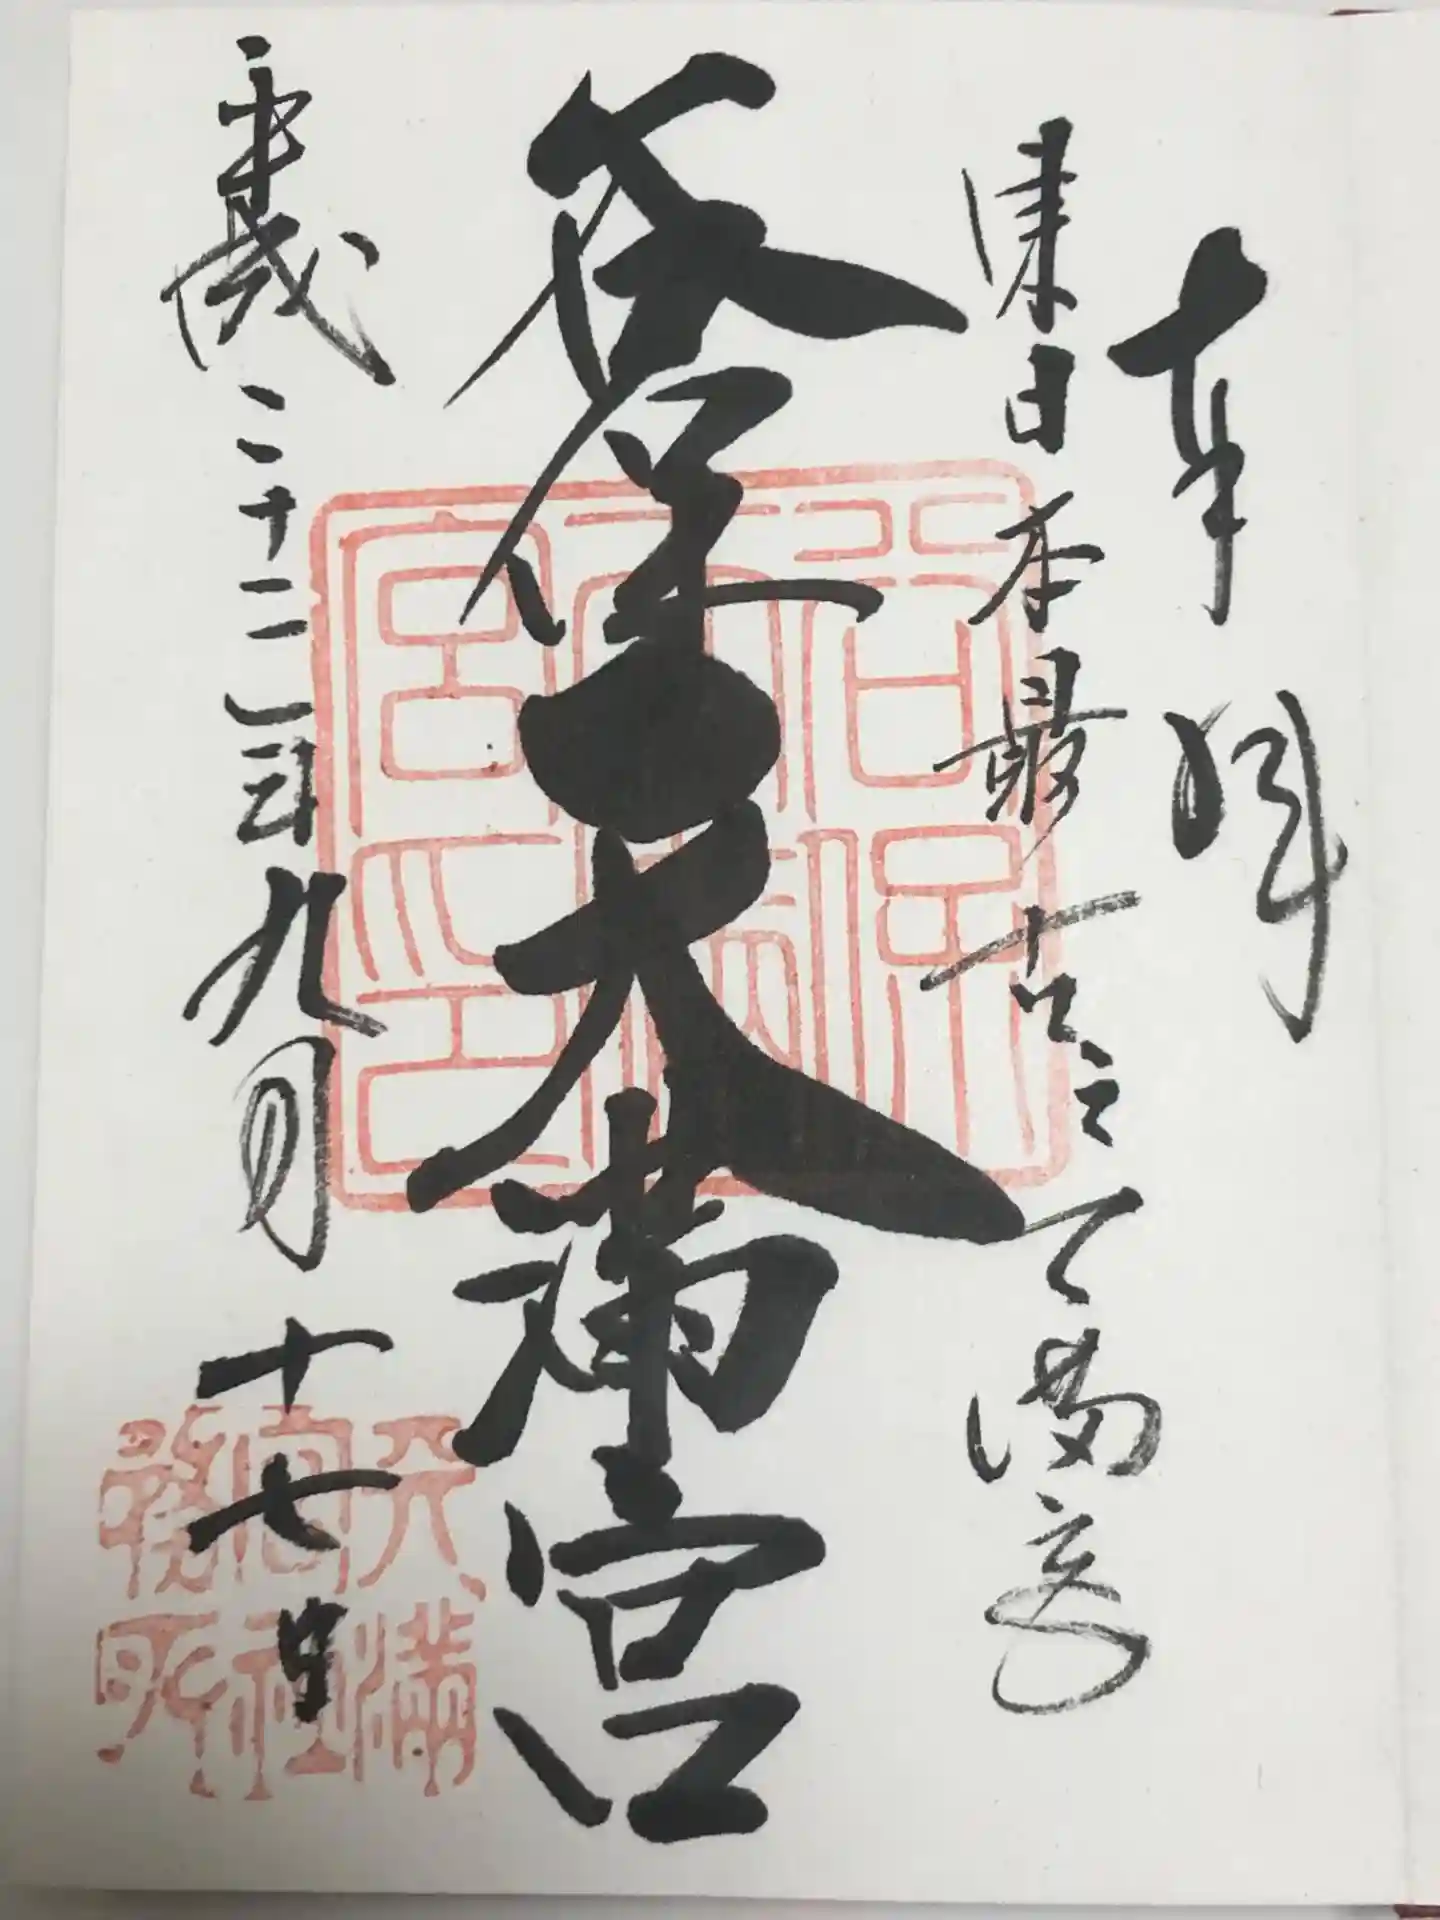 奉拝
東日本最古之天満宮
谷保天満宮
平成二十三年九月十七日
谷保天満宮印
天満宮社務所